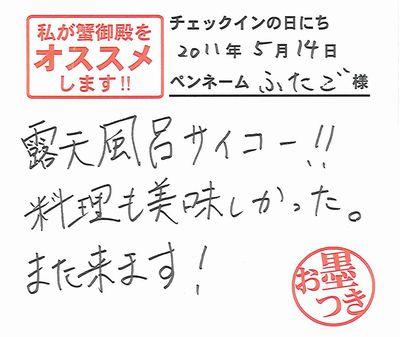 私が蟹御殿を
オススメ
します!!
チェックインの日にち
2011年5月14日
ペンネーム ふたご 様
露天風呂サイコー!!
料理も美味しかった。
また来ます!
お墨つき